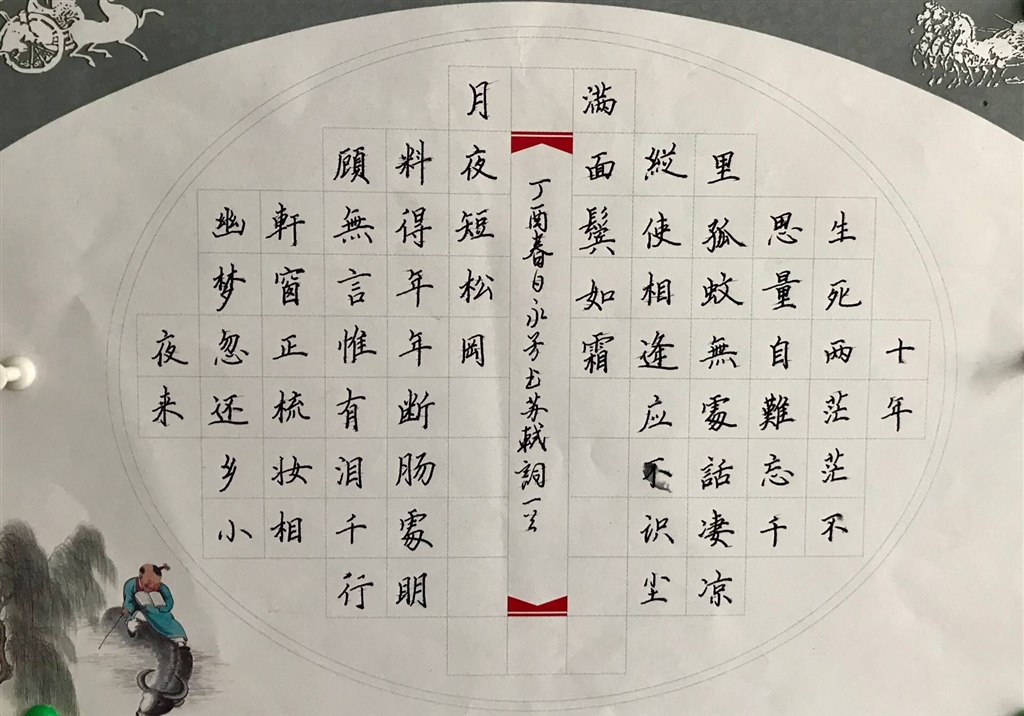 十年
生死两茫茫不
思量自難忘千
里孤蚊無處話凄凉
縱使相逢应不识尘
满面鬓如霜
夜来
幽梦忽还乡小
軒窗正梳妆相
顧無言惟有泪千行
料得年年断肠處明
月夜短松岡
丁酉春日永芳书苏轼詞一首